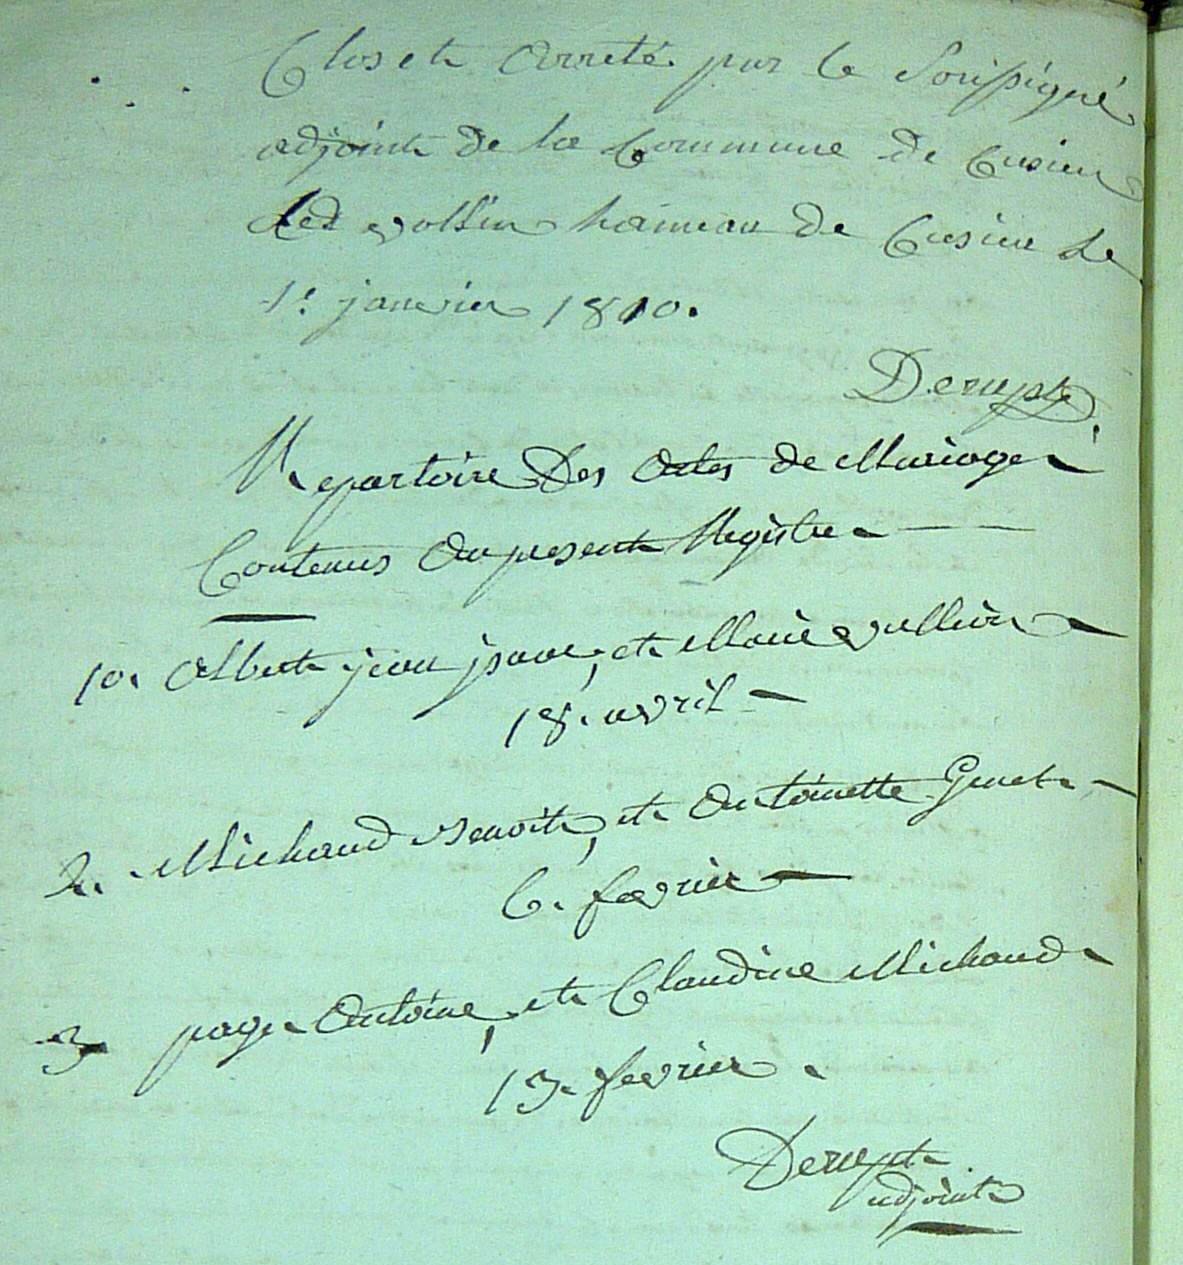 Clos et Arreté par le Sousigné
adjoint de la Commune de Cusieu
hameau de Cusieu le
1er janvier 1810.
Derupt
Repertoire Des Actes de Mariage
Contenus Au present Registre
10. Albert jean et Marie vullien
18. avril
2. Michaud Benoite, et Antoinette Genet
6. fevrier
3 page Antoine, et Claudine Michaud
13. fevrier
Derupt
adjoint